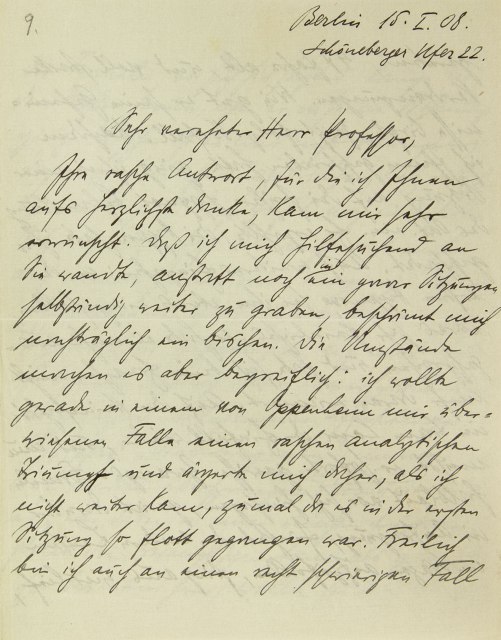 9.
Berlin 15. I. 08.
Schöneberger Ufer 22.
Sehr verehrter Herr Professor,
Ihre rasche Antwort, für die ich Ihnen
aufs herzlichste danke, kam mir sehr
erwünscht. Daß ich mich hilfesuchend an
Sie wandte, anstatt noch in ein paar Sitzungen
selbständig weiter zu graben, beschämt mich
nachträglich ein bischen. Die Umstände
machen es aber begreiflich: ich wollte
gerade in einem von Oppenheim mir über=
wiesenen Falle einen raschen analytischen
Triumpf und ärgerte mich daher, als ich
nicht weiter kam, zumal da es in der ersten
Sitzung so flott gegangen war. Freilich
bin ich auch an einen recht schwierigen Fall